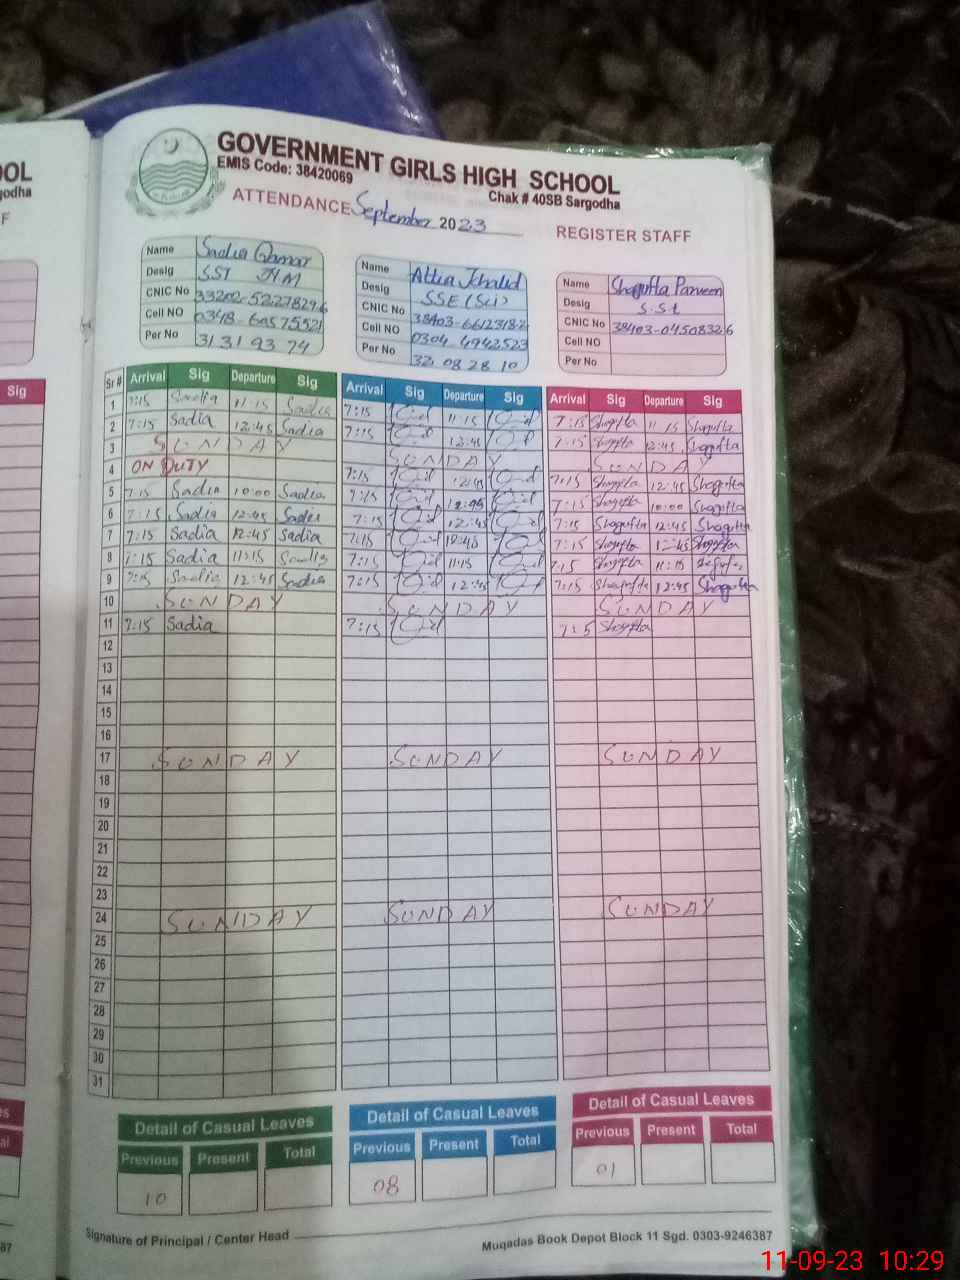 OOL
godha
F
Sig
GOVERNMENT GIRLS HIGH SCHOOL
EMIS Code: 38420069
Chak # 40SB Sargodha
ATTENDANCE September 2023
REGISTER STAFF
Name Sadia Qamar
Desig SST
CNIC No
Cell NO
Per No 31319374
Name Attia Khalid
Desig SSE (Sci)
CNIC No 38403-6612318-2
Cell No 0304-4942523
Per No 32082810
Name Shagufta Parveen
Desig S.S.t
CNIC No 38403-0450832-6
Cell NO
Per No
Sr # Arrival Sig Departure Sig Arrival Sig Departure Sig Arrival Sig Departure Sig
1 7:15 Sadia 11:15 Sadia 7:15 11:15 7:15 Shagufta 11:15 Shagufta
2 7:15 Sadia 12:45 Sadia 7:15 12:45 7:15 Shagufta 12:45 Shagufta
3 SUNDAY SUNDAY SUNDAY
4 ON DUTY 7:15 12:45 7:15 Shagufta 12:45 Shagufta
5 7:15 Sadia 10:00 Sadia 7:15 7:15 Shagufta 10:00 Shagufta
6 7:15 Sadia 12:45 Sadia 7:15 12:45 7:15 Shagufta 12:45 Shagufta
7 7:15 Sadia 12:45 Sadia 7:15 7:15 Shagufta 12:45 Shagufta
8 7:15 Sadia 11:15 Sadia 7:15 11:15 7:15 Shagufta 11:15
9 7:15 Sadia 12:45 Sadia 7:15 12:45 7:15 Shagufta 12:45 Shagufta
10 SUNDAY SUNDAY SUNDAY
11 7:15 Sadia 7:15 Shagufta
12
13
14
15
16
17 SUNDAY SUNDAY SUNDAY
18
19
20
21
22
23
24 SUNDAY SUNDAY SUNDAY
25
26
27
28
29
30
31
Detail of Casual Leaves Detail of Casual Leaves Detail of Casual Leaves
Previous Present Total Previous Present Total Previous Present Total
10 08 01
Signature of Principal / Center Head
Muqadas Book Depot Block 11 Sgd. 0303-9246387
11-09-23 10:29